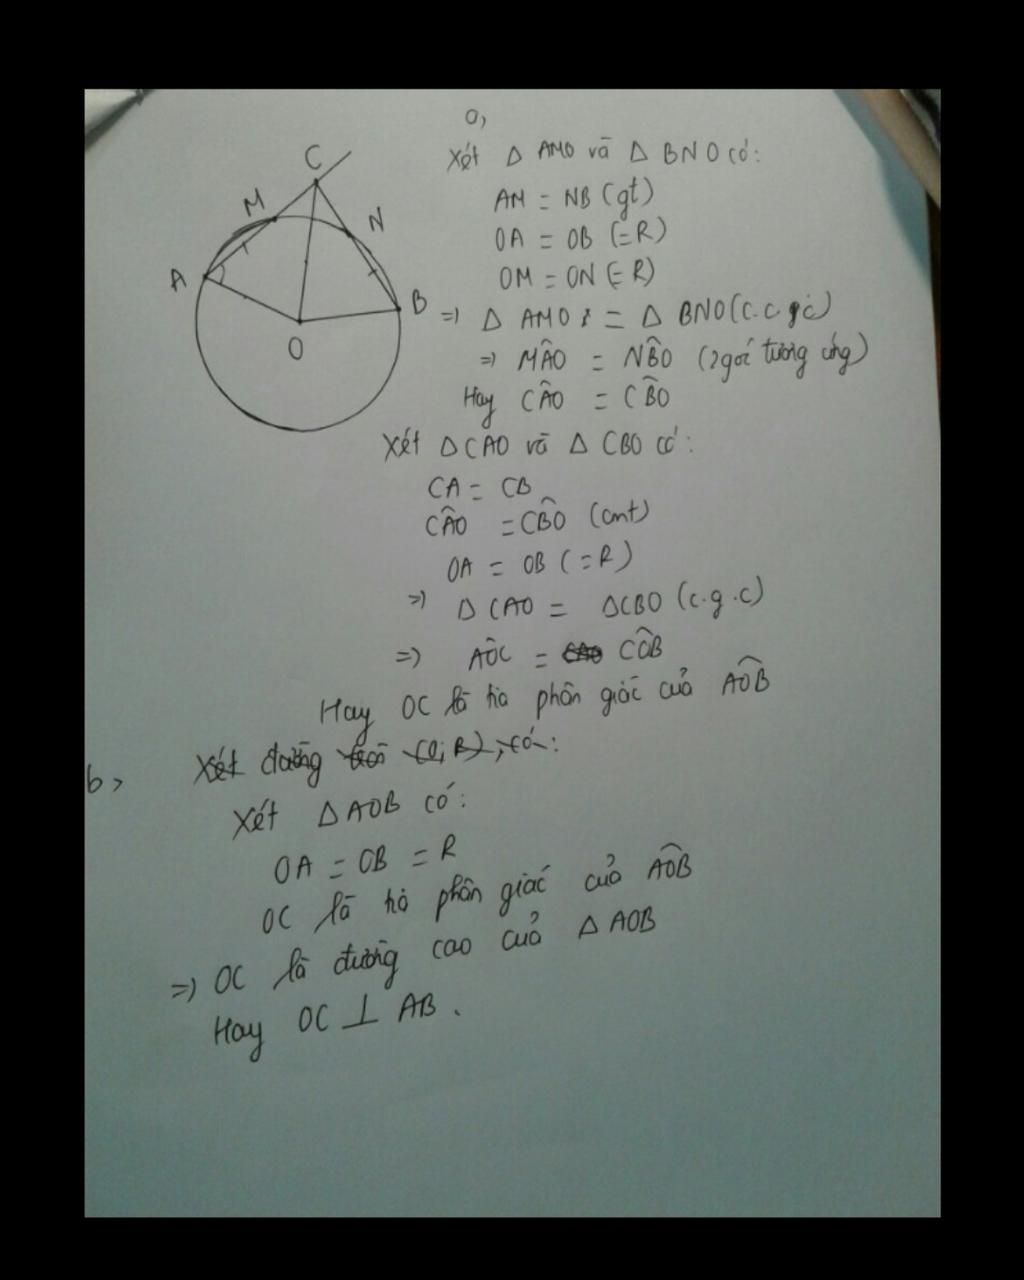 C
M
N
A
B
O
a,
Xét Δ AMO và Δ BNO có:
AM = NB (gt)
OA = OB (=R)
OM = ON (=R)
=) Δ AMO = Δ BNO (c.c.c)
=) MÂO = NB̂O (2 góc tương ứng)
Hay CÂO = CB̂O
Xét Δ CAO và Δ CBO có:
CA = CB
CÂO = CB̂O (cmt)
OA = OB (=R)
=) Δ CAO = ΔCBO (c.g.c)
=) AÔC = CÔB
Hay OC là tia phân giác của AÔB
b, Xét đường tròn (O; R), có:
Xét Δ AOB có:
OA = OB = R
OC là tia phân giác của AÔB
=) OC là đường cao của Δ AOB
Hay OC ⊥ AB.